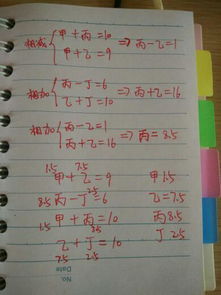 相减 { 甲+丙=10
甲+乙=9 => 丙-乙=1
相加 { 丙-丁=6
乙+丁=10 => 丙+乙=16
相加 { 丙-乙=1
丙+乙=16 => 丙=8.5
1.5 7.5
甲+乙=9 甲1.5
2.5
8.5 丙-丁=6 乙=7.5
1.5 甲+丙=10 丙8.5
8.5
乙+丁=10 丁2.5
7.5 2.5
No.
Date